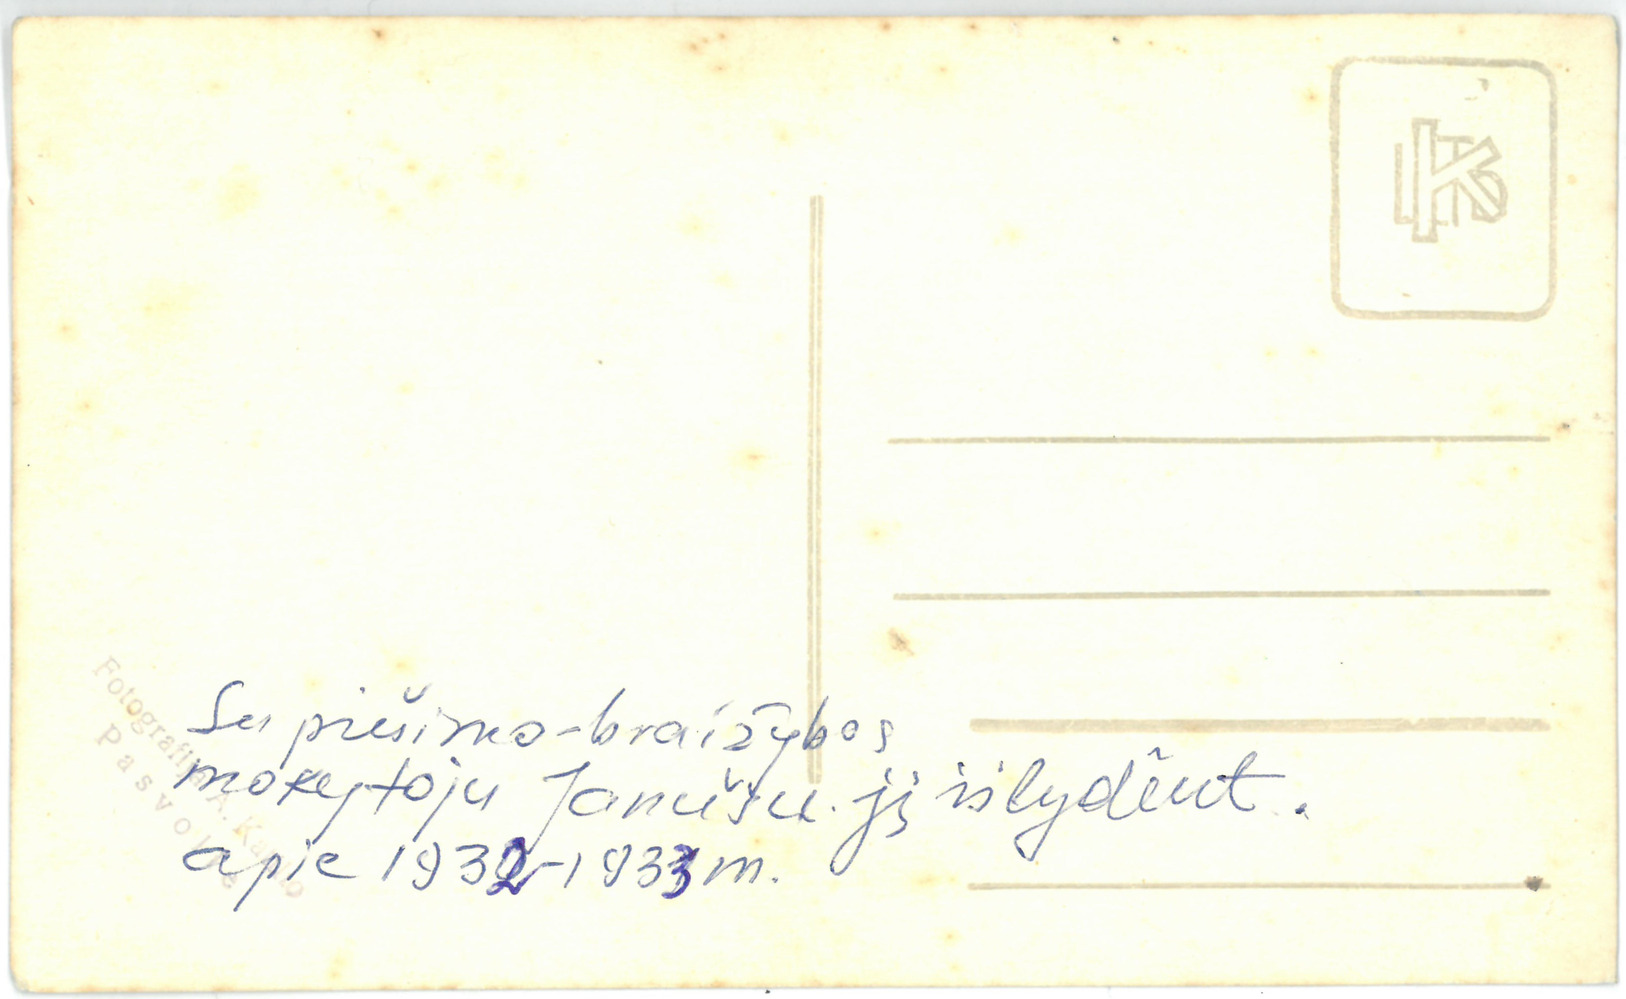 Su piešimo-braižybos
mokytoju Janušu. jį išlydėnt.
apie 1932-1933 m.
Fotografija A.
Pasvaly